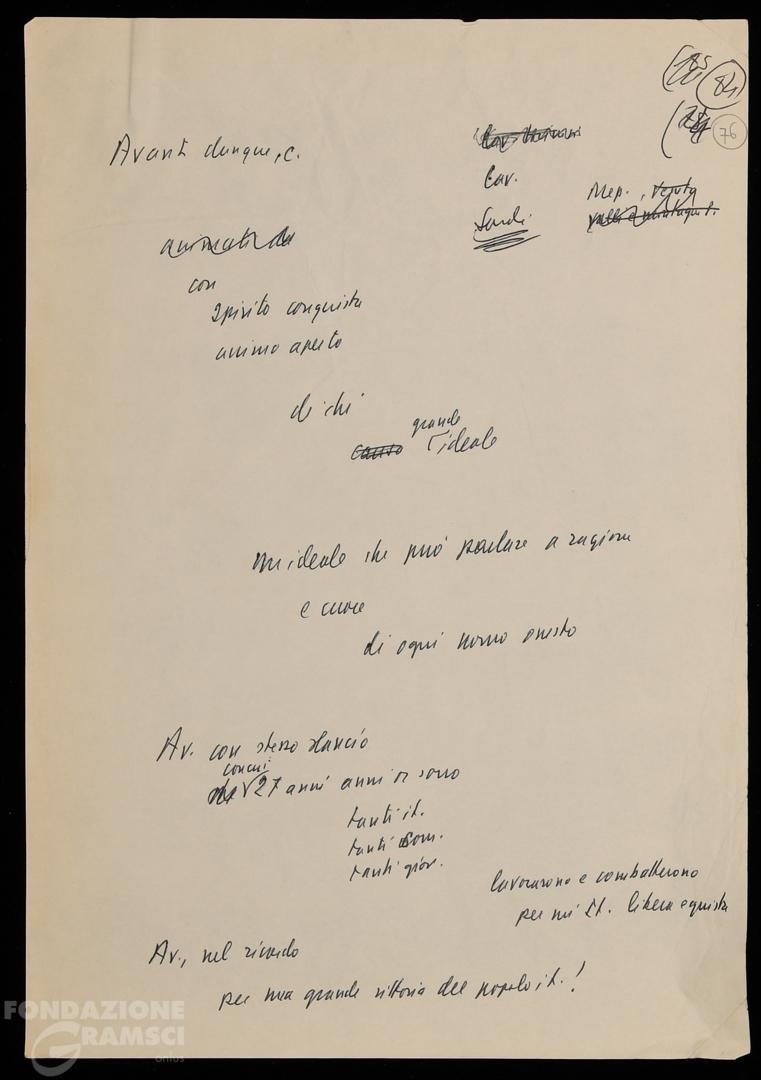 85
84
76
Avanti dunque, c.
Lav.
Sardi
Mep., Veneta
animati da
con
spirito conquista
animo aperto
di chi
grande
causa ideale
un ideale che può parlare a ragione
e cuore
di ogni uomo onesto
Av. con stesso slancio
con cui
27 anni anni or sono
tanti it.
tanti
tanti giov.
lavorarono e combatterono
per un' It. libera e giusta
Av., nel ricordo
per una grande vittoria del popolo it.!
FONDAZIONE
GRAMSCI
onlus